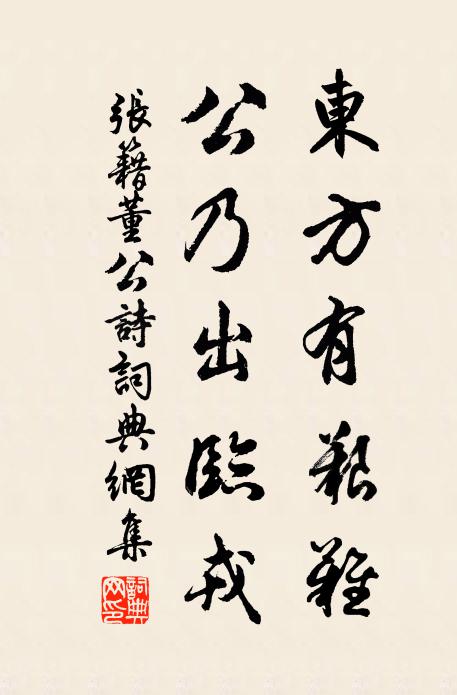 東方有艱難
公乃出臨戎
張籍董公詩詞典網集
詞典
网印